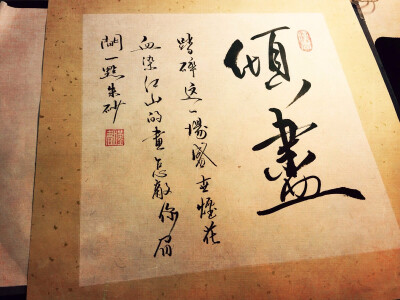 傾盡
踏碎这一場盛世煙花
血染江山的畫怎敵你眉
間一點朱砂